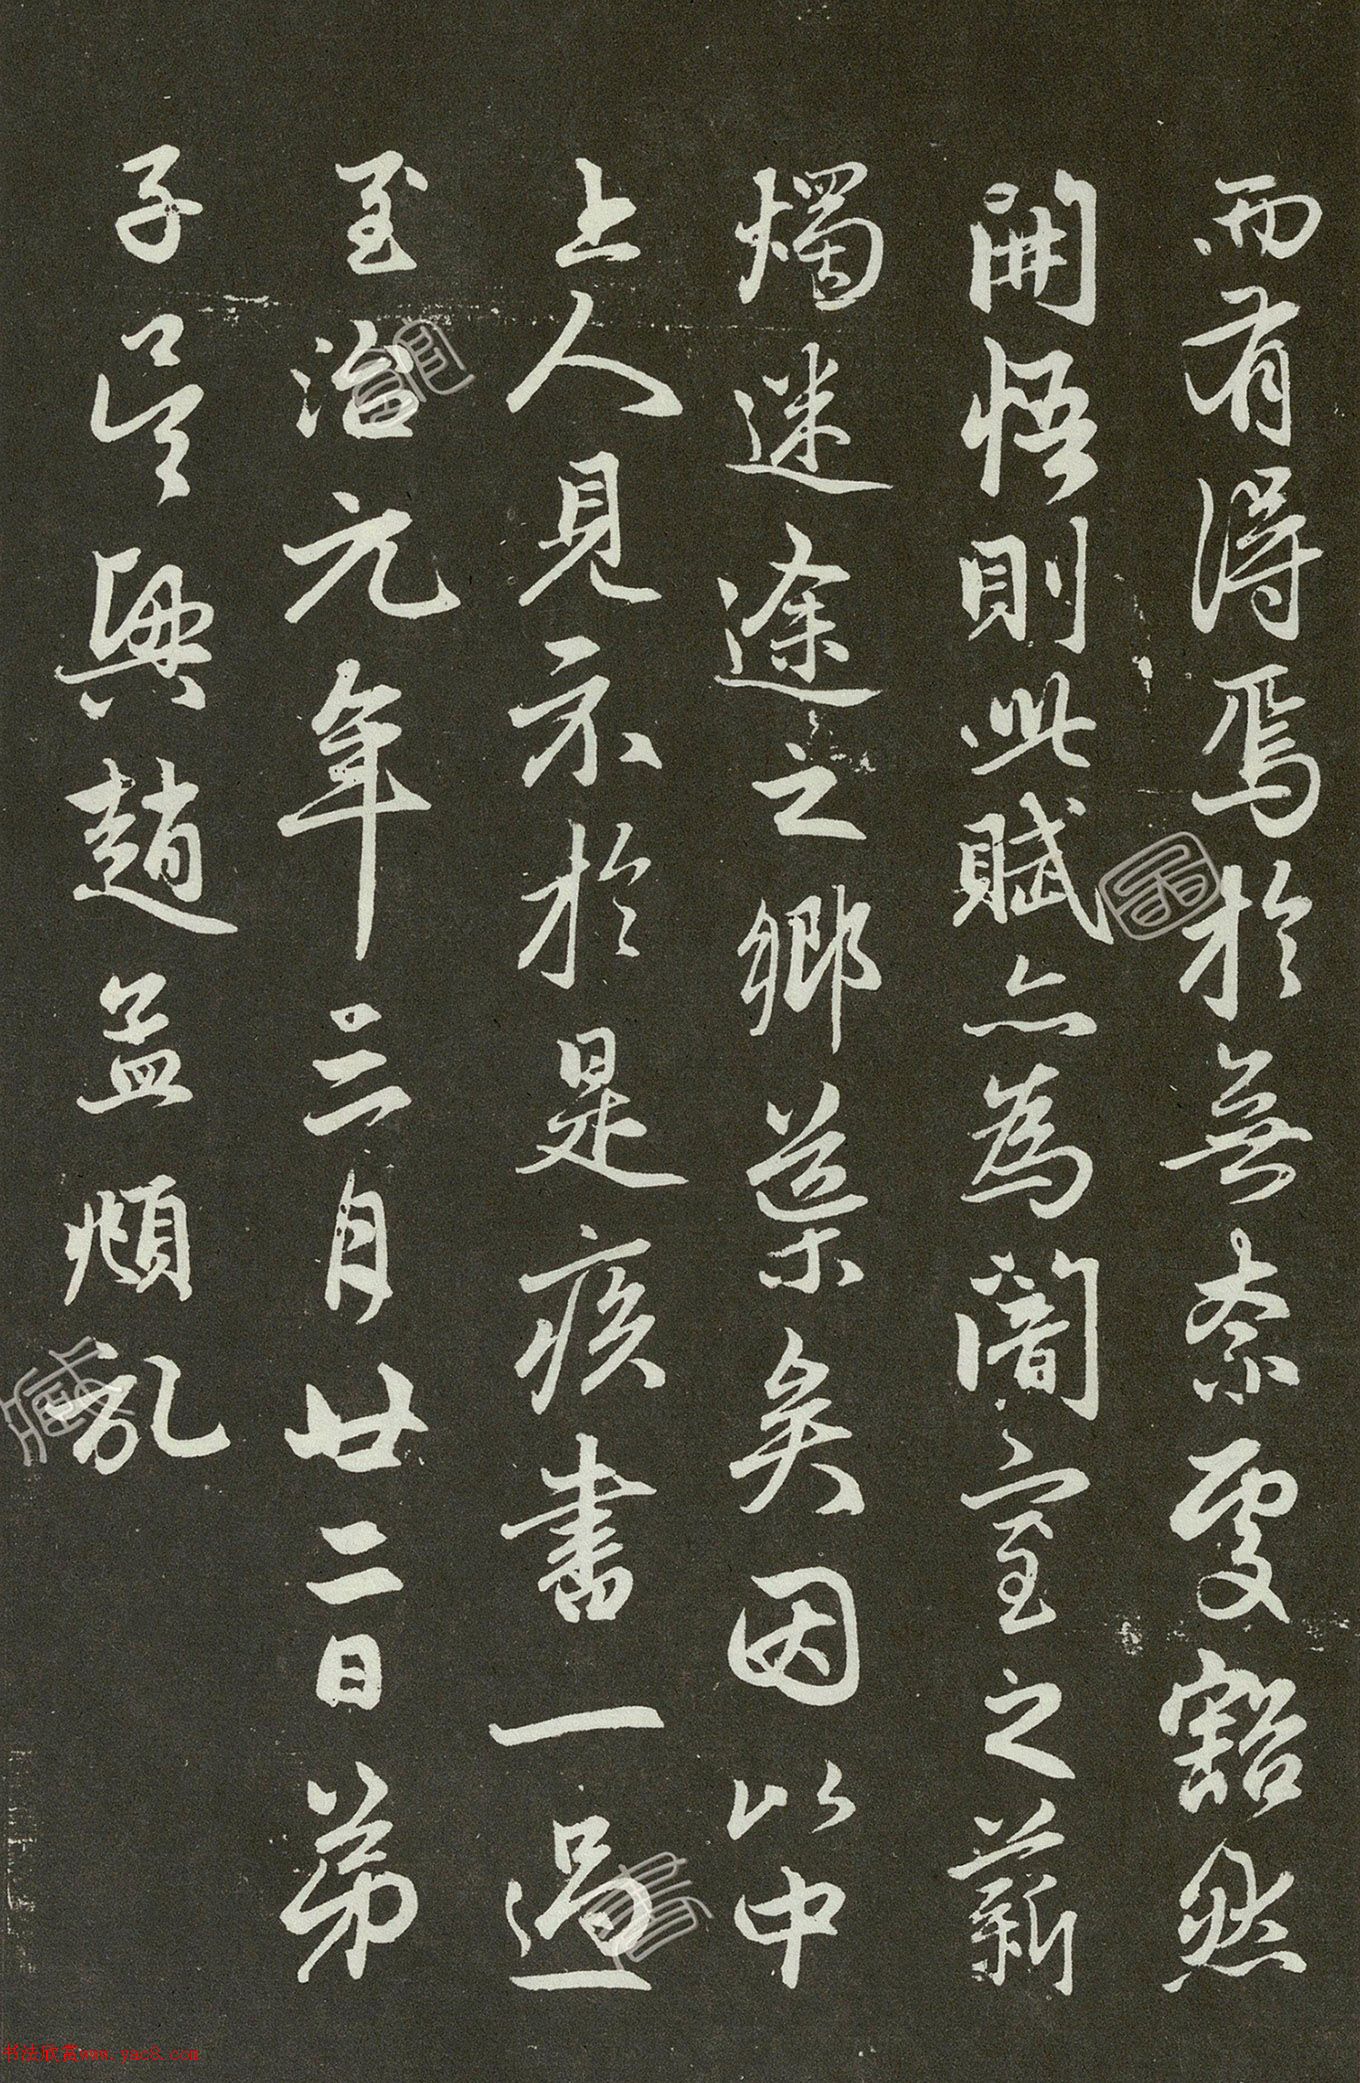 而有得焉於無奈處豁然
開悟則此賦亦為闇室之薪
燭迷途之鄉導矣因以中
上人見示於是疾書一過
至治元年三月廿二日弟
子吳興趙孟頫記
书法欣赏www.yac8.com